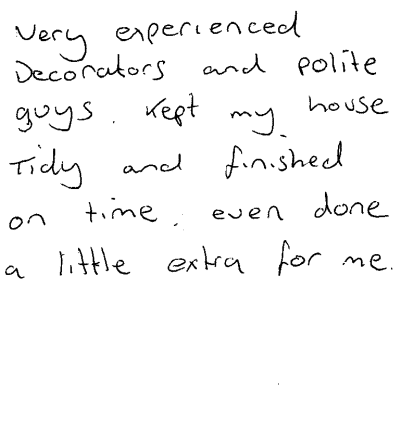 Very experienced
Decorators and polite
guys. Kept my house
Tidy and finished
on time. even done
a little extra for me.